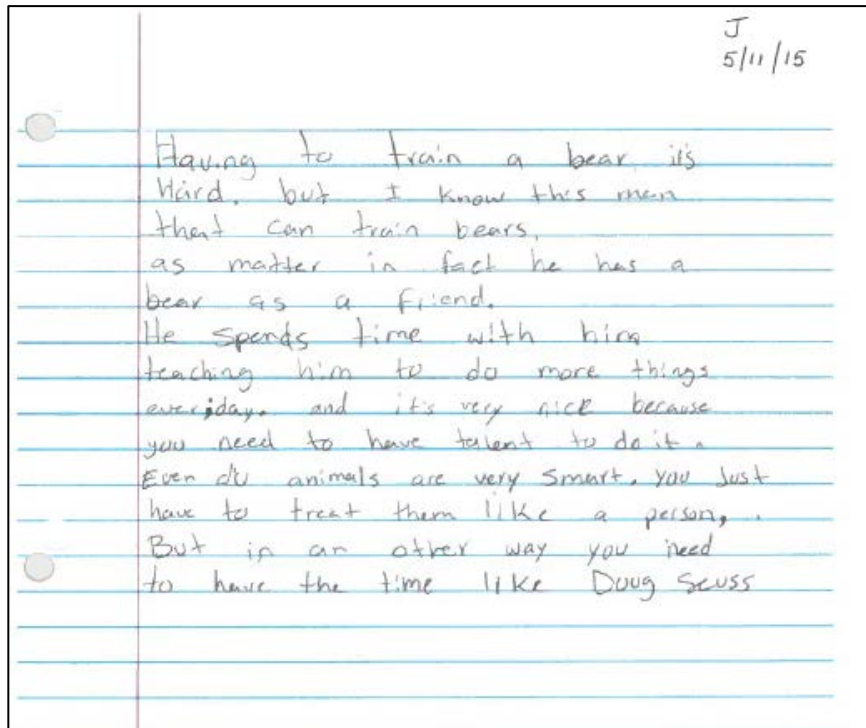 J
5/11/15
Having to train a bear it's
Hard. but I know this man
that can train bears.
as matter in fact he has a
bear as a friend.
He spends time with him
teaching him to do more things
everyday. and it's very nice because
you need to have talent to do it.
Even animals are very smart. you Just
have to treat them like a person,.
But in an other way you need
to have the time like Doug Seuss